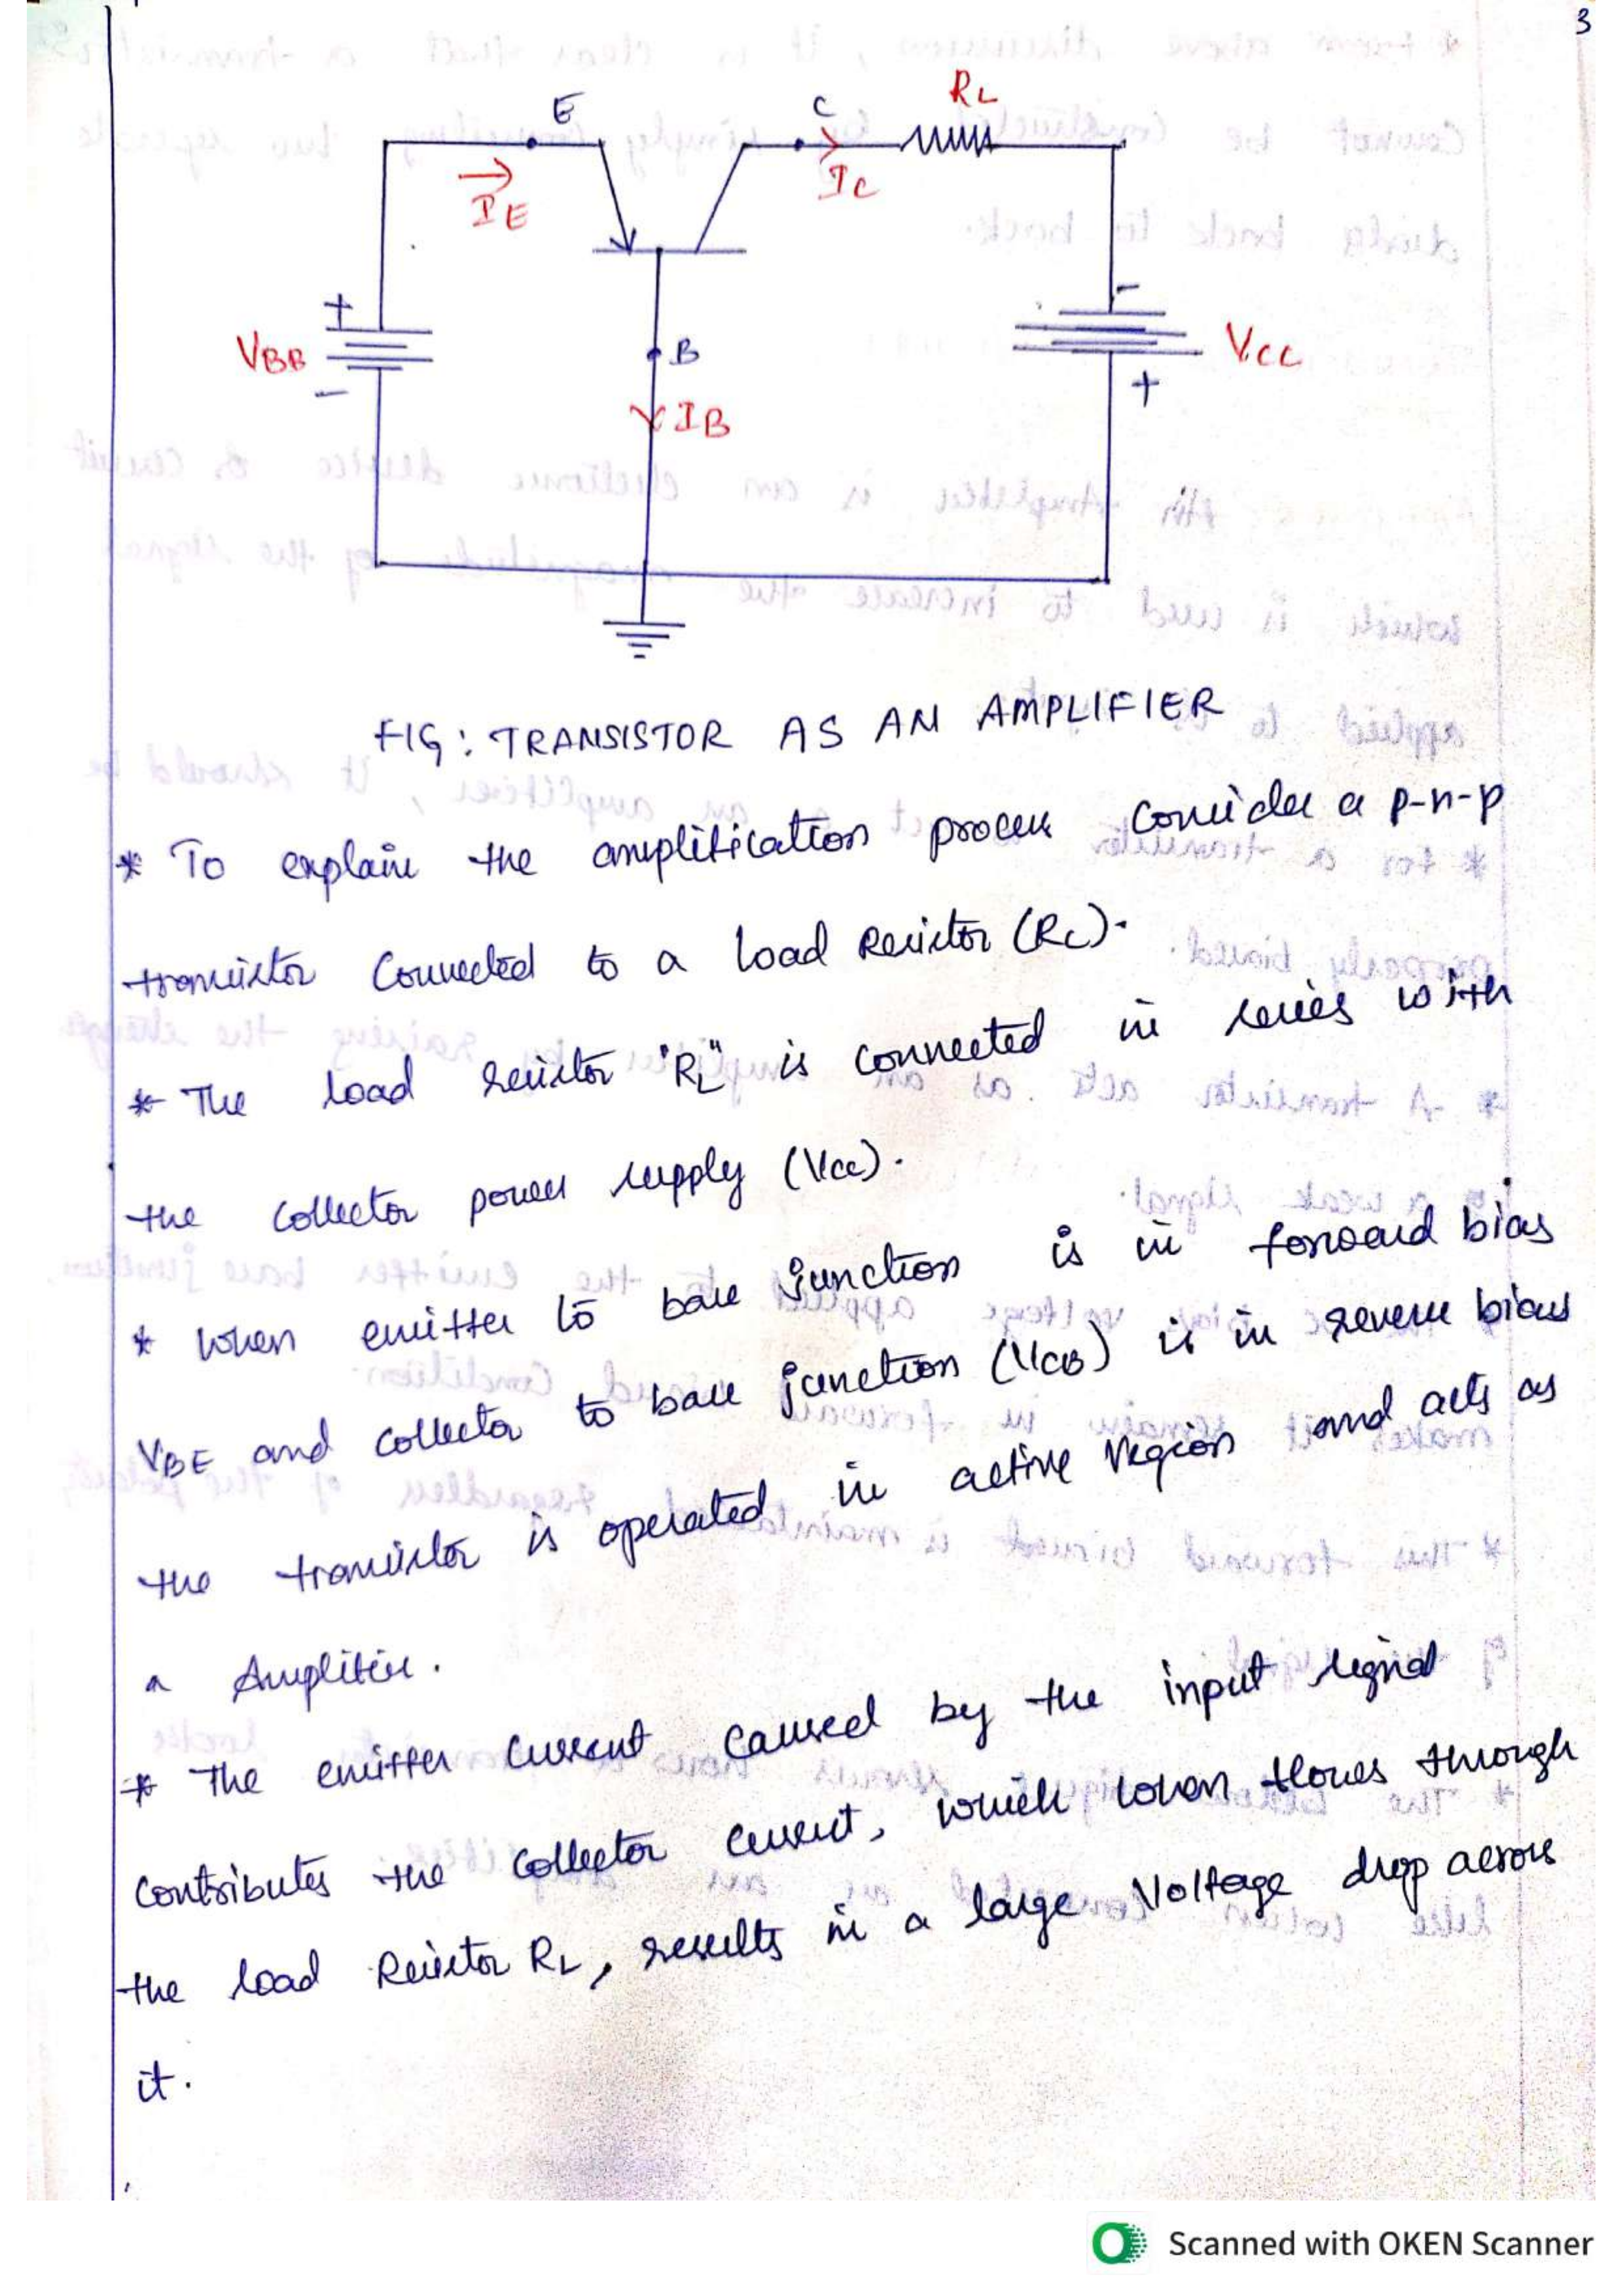 3
E
C
RL
IE
IC
+
VBB
-
B
IB
-
VCC
+
FIG: TRANSISTOR AS AN AMPLIFIER
* To explain the amplification process consider a p-n-p
transistor connected to a load Resistor (RL).
* The load resistor "RL" is connected in series with
the collector power supply (Vcc).
* When emitter to base junction is in forward bias
VBE and collector to base junction (VCB) is in reverse bias
the transistor is operated in active region and acts as
a Amplifier.
* The emitter current caused by the input signal
contributes the collector current, which when flows through
the load Resistor RL, results in a large voltage drop across
it.
Scanned with OKEN Scanner